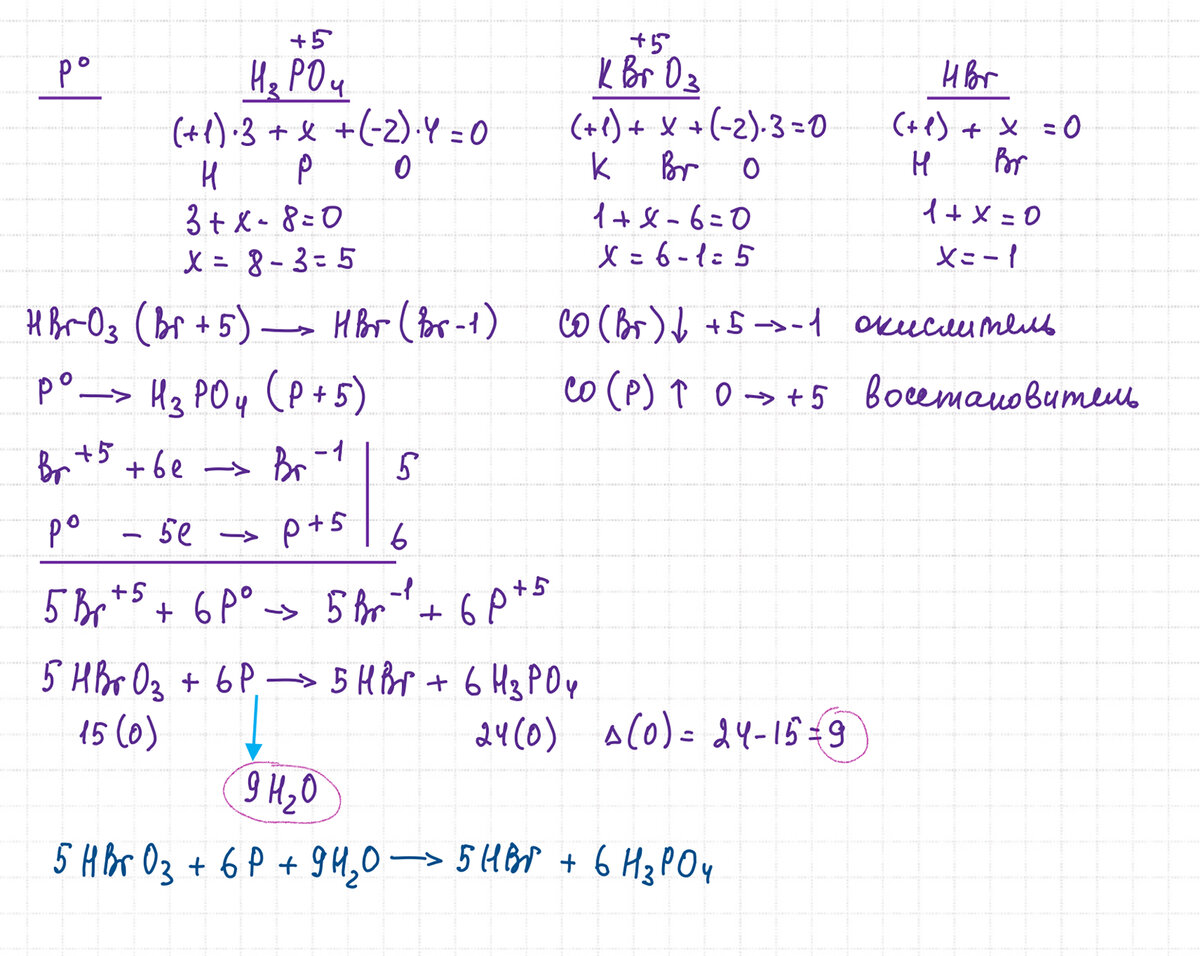 +5 +5
P⁰ H₃PO₄ KBrO₃ HBr
(+1)·3 + x + (-2)·4 = 0 (+1) + x + (-2)·3 = 0 (+1) + x = 0
H P O K Br O H Br
3 + x - 8 = 0 1 + x - 6 = 0 1 + x = 0
x = 8 - 3 = 5 x = 6 - 1 = 5 x = -1
HBrO₃ (Br+5) → HBr (Br-1) CO(Br)↓ +5 → -1 окислитель
P⁰ → H₃PO₄ (P+5) CO(P)↑ 0 → +5 восстановитель
Br⁺⁵ + 6e → Br⁻¹ | 5
P⁰ - 5e → P⁺⁵ | 6
5Br⁺⁵ + 6P⁰ → 5Br⁻¹ + 6P⁺⁵
5HBrO₃ + 6P → 5HBr + 6H₃PO₄
15(O) 24(O) Δ(O) = 24 - 15 = 9
9H₂O
5HBrO₃ + 6P + 9H₂O → 5HBr + 6H₃PO₄